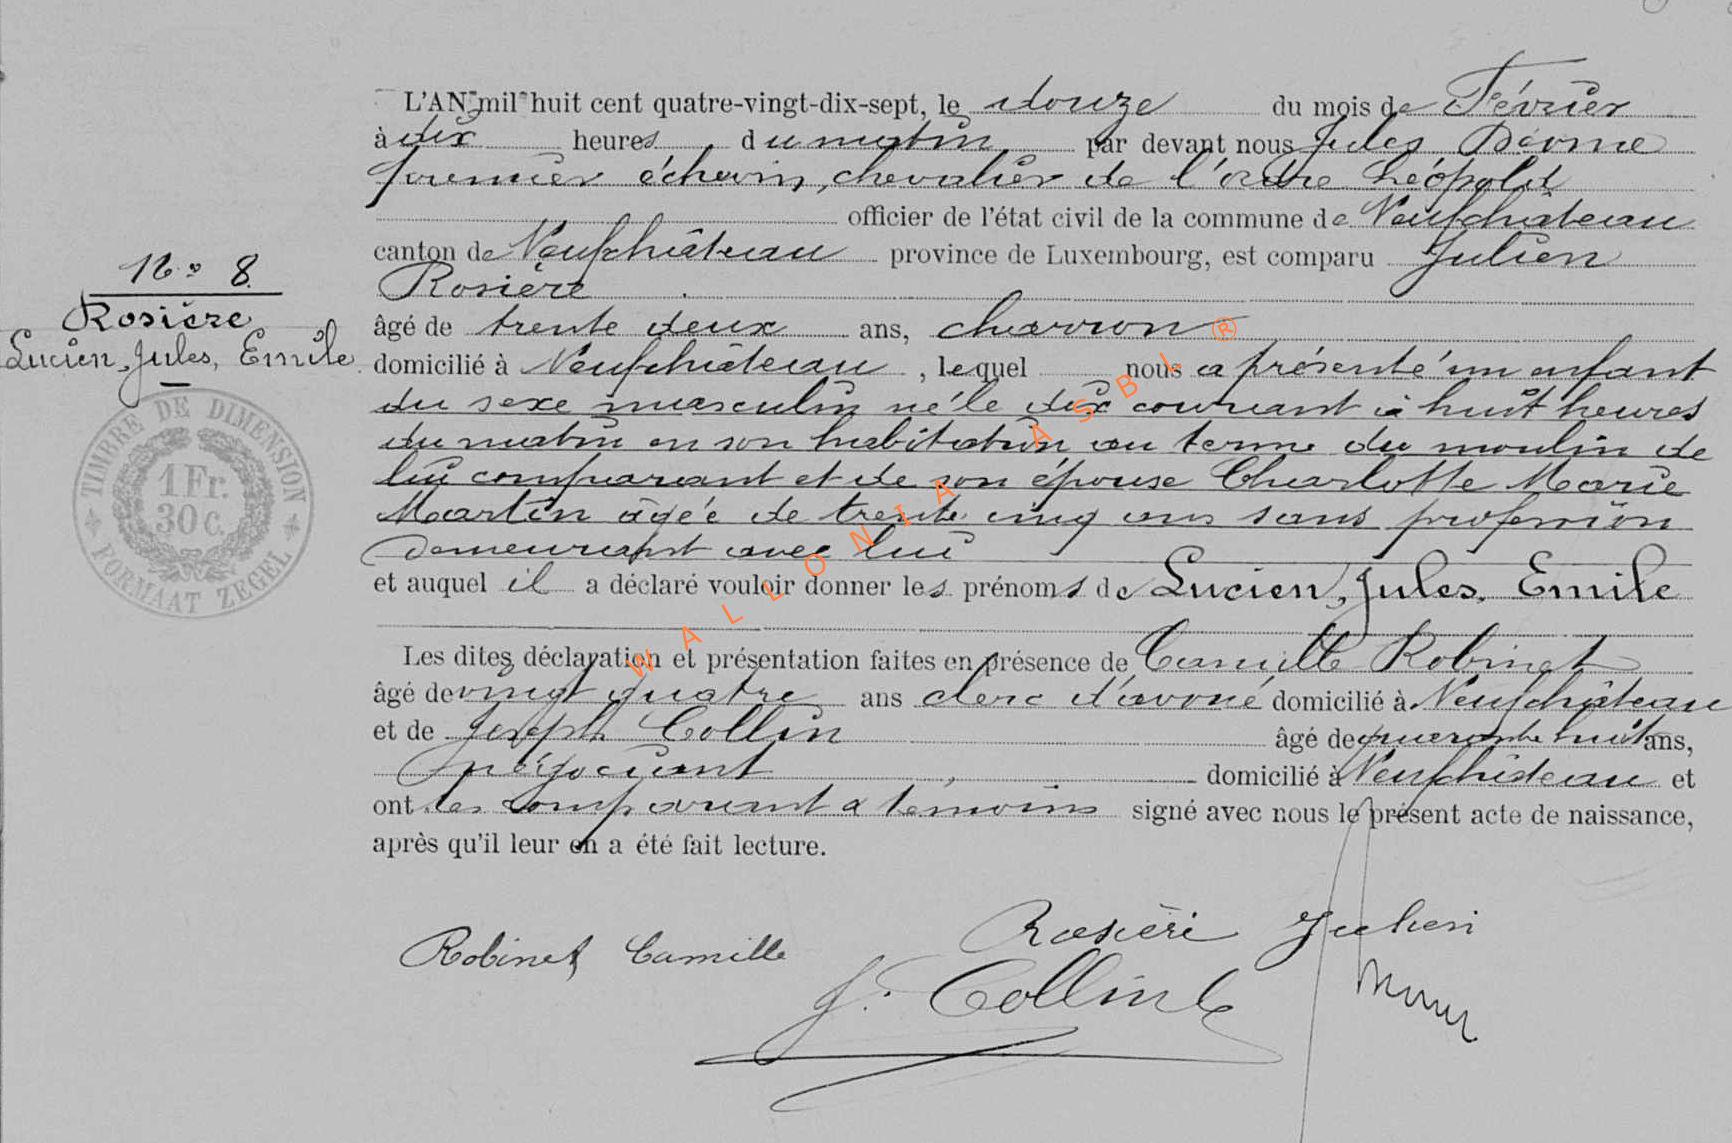 L'AN mil huit cent quatre-vingt-dix-sept, le douze du mois de Février
à dix heures du matin par devant nous Jules
premier échevin, chevalier de l'ordre Léopold
officier de l'état civil de la commune de Neufchâteau
canton de Neufchâteau province de Luxembourg, est comparu Julien
Rosière
âgé de trente deux ans, charron
domicilié à Neufchâteau, lequel nous a présenté un enfant
du sexe masculin né le dix courant à huit heures
du matin en son habitation au terme du moulin de
lui comparant et de son épouse Charlotte Marie
Martin âgée de trente cinq ans sans profession
demeurant avec lui
et auquel il a déclaré vouloir donner les prénoms de Lucien, Jules, Emile
Les dites déclaration et présentation faites en présence de Camille Robinet
âgé de vingt quatre ans clerc d'avoué domicilié à Neufchâteau
et de Joseph Collin âgé de quarante huit ans,
négociant, domicilié à Neufchâteau et
ont les comparant & témoins signé avec nous le présent acte de naissance,
après qu'il leur en a été fait lecture.
No 8.
Rosière
Lucien, Jules, Emile
TIMBRE DE DIMENSION
1 Fr.
30 c.
FORMAAT ZEGEL
Robinet Camille
Rosière Julien
J. Collin
WALLONIA ASBL ®